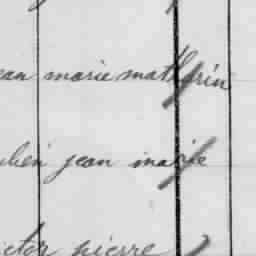 ean marie mathurin
ulien jean marie
ictor pierre